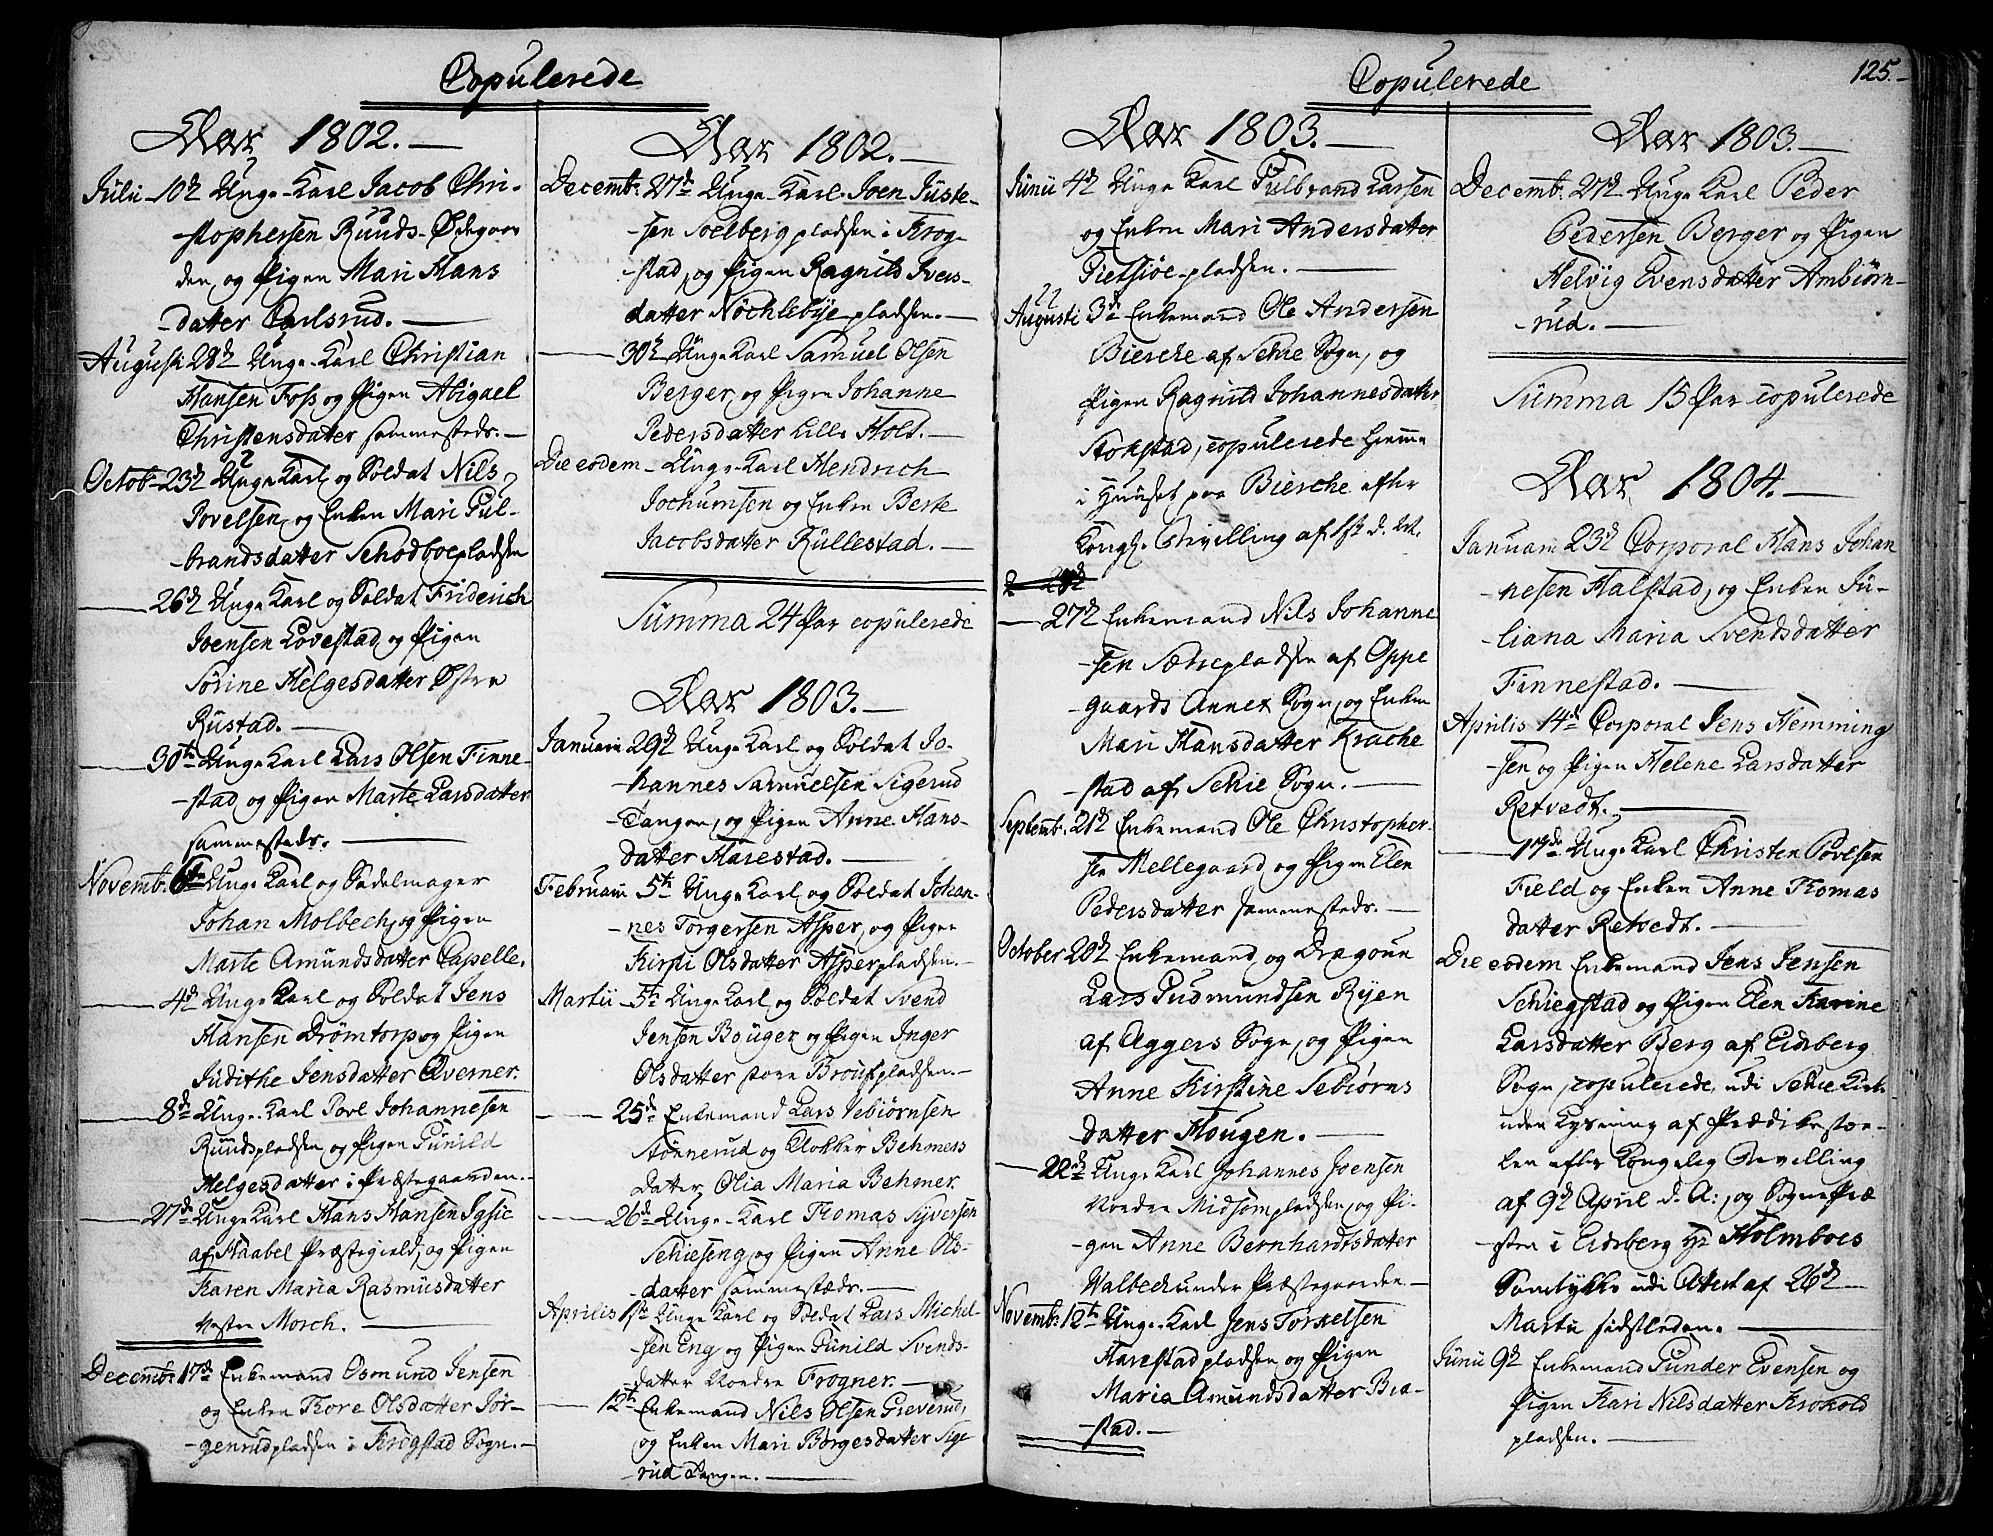 Copulerede
Aar 1802.
Julii 10d Unge Karl Jacob Chri-
stophersen Ruuds-Ødegaar
den, og Pigen Mari Hans
datter Carlsrud.
Augusti 28d Unge Karl Christian
Hansen Foss og Pigen Abigael
Christensdatter sammesteds.
Octob. 23d Unge Karl og Soldat Nils
Povelsen, og Enken Mari Gul-
brandsdatter Schodboepladsen
26d Unge Karl og Soldat Friderich
Joensen Lovestad og Pigen
Sørine Helgesdatter Østre
Rustad.
30te Unge Karl Lars Olsen Finne-
stad, og Pigen Marte Larsdatter
sammesteds.
Novemb. 6te Unge Karl og Sadelmager
Johan Molbech, og Pigen
Marte Amundsdatter Capelle.
4d Unge Karl og Soldat Jens
Hansen Drømtorp og Pigen
Judithe Jensdatter Qverner.
8de Unge Karl Povl Johannesen
Ruudspladsen og Pigen Gunild
Helgesdatter i Præstegaarden.
27de Unge Karl Hans Hansen
af Haabel Præstegield, og Pigen
Karen Maria Rasmusdatter
Morch.
Decemb. 17de Enkemand Osmund Jensen
og Enken Thore Olsdatter Jør-
genrudpladsen i Krogstad Sogn.
Aar 1802.
Decemb. 27de Unge Karl Joen Juste-
sen Soelberg pladsen i Krog-
stad, og Pigen Ragnild Ivers-
datter Nøchlebye pladsen.
30te Unge Karl Samuel Olsen
Berger, og Pigen Johanne
Pedersdatter Lille Holt.
Die eodem Unge Karl Hendrich
Jochumsen og Enken Berte
Jacobsdatter Kullestad.
Summa 24 Par copulerede
Aar 1803.
Januarii 29d Unge Karl og Soldat Jo-
hannes Samuelsen Sigerud
Tangen, og Pigen Anne Hans-
datter Harestad.
Februarii 5te Unge Karl og Soldat Johan-
nes Torgersen Asper, og Pigen
Kirsti Olsdatter Asperpladsen.
Martii 5te Unge Karl og Soldat Svend
Jensen Bouger og Pigen Inger
Olsdatter store Broutpladsen.
25de Enkemand Lars Vebiørnsen
Stønnerud og Klokker Behmers
Datter, Olia Maria Behmer.
26de Unge Karl Thomas Syversen
Schieseng, og Pigen Anne Ols-
datter sammestæds.
Aprilis 1ste Unge Karl og Soldat Lars Michel-
sen Eng og Pigen Gunild Svends-
datter Nordre Frogner.
12te Enkemand Nils Olsen Greverud,
og Enken Mari Børgesdatter Sige
rud Tangen.
Copulerede
125.
Aar 1803.
Junii 4d Unge Karl Gulbrand Larsen
og Enken Mari Andersdatter
Gietsiøe-pladsen.
Augusti 3de Enkemand Ole Andersen
Biercke af Schie Sogn, og
Pigen Ragnild Johannesdatter
Stokstad, copulerede hiemme
i Huuset paa Biercke efter
Kongl. Bevilling af
27d Enkemand Nils Johanne
sen Sætrepladsen af Oppe
gaards Annex Sogn, og Enken
Mari Hansdatter Krache
stad af Schie Sogn.
Septemb. 21d Enkemand Ole Christopher-
sen Mellegaard og Pigen Elen
Pedersdatter sammesteds.
October 20d Enkemand og Dragoun
Lars Gudmundsen Ryen
af Aggers Sogn, og Pigen
Anne Kirstine Sebiørns
datter Hougen.
22de Unge Karl Johannes Joensen
Nordre Midsompladsen, og Pi-
gen Anne Bernhardtsdatter
Walbech under Præstegaarden.
Novemb. 12te Unge Karl Jens Torkelsen
Harestad pladsen og Pigen
Maria Amundsdatter Bia-
stad.
Aar 1803.
Decemb. 27d Unge Karl Peder
Pedersen Berger og Pigen
Helvig Evensdatter Ambiørn-
rud.
Summa 15 Par copulerede
Aar 1804.
Januarii 23d Corporal Hans Johan
nesen Halstad, og Enken Ju-
liana Maria Svendsdatter
Finnestad.
Aprilis 14de Corporal Jens Hemming
sen og Pigen Helene Larsdatter
Retvedt.
17de Unge Karl Christen Povelsen
Field og Enken Anne Thomas
datter Retvedt.
Die eodem Enkemand Jens Jensen
Schiegstad og Pigen Elen Karine
Larsdatter Berg af Eidsberg
Sogn, copulerede udi Schie Kirke
uden Lysning af Prædikestoe-
len efter Kongelig Bevilling
af 9d April d. A:, og Sogne Præ
sten i Eidsberg Hr Holmboes
Samtykke udi Attest af 26d
Martii sidstleden.
Junii 9d Enkemand Gunder Evensen og
Pigen Kari Nilsdatter Krokold
pladsen.